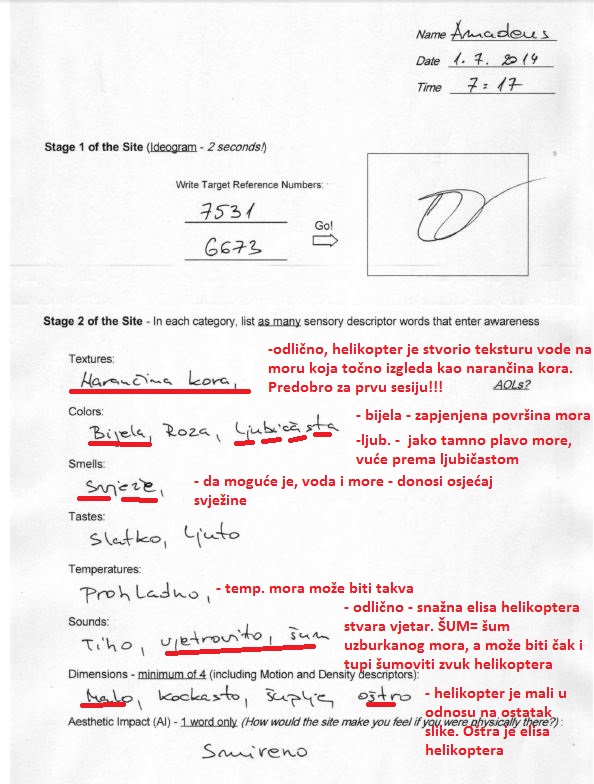 Name Amadeus
Date 1. 7. 2014
Time 7:17
Stage 1 of the Site (Ideogram - 2 seconds!)
Write Target Reference Numbers:
7531
Go!
6673
Stage 2 of the Site - In each category, list as many sensory descriptor words that enter awareness
Textures:
Narančina kora,
-odlično, helikopter je stvorio teksturu vode na
moru koja točno izgleda kao narančina kora.
Predobro za prvu sesiju!!!
AOLs?
Colors:
Bijela, Roza, Ljubičasta
- bijela - zapjenjena površina mora
-ljub. - jako tamno plavo more,
vuće prema ljubičastom
Smells:
Svježe,
- da moguće je, voda i more - donosi osjećaj
svježine
Tastes:
Slatko, Ljuto
Temperatures:
Prohladno,
- temp. mora može biti takva
Sounds:
Tiho, vjetrovito, šum
- odlično - snažna elisa helikoptera
stvara vjetar. ŠUM= šum
uzburkanog mora, a može biti čak i
tupi šumoviti zvuk helikoptera
Dimensions - minimum of 4 (including Motion and Density descriptors):
Malo, kockasto, šuplje, oštro
- helikopter je mali u
odnosu na ostatak
slike. Oštra je elisa
helikoptera
Aesthetic Impact (AI) - 1 word only (How would the site make you feel if you were physically there?) :
Smireno